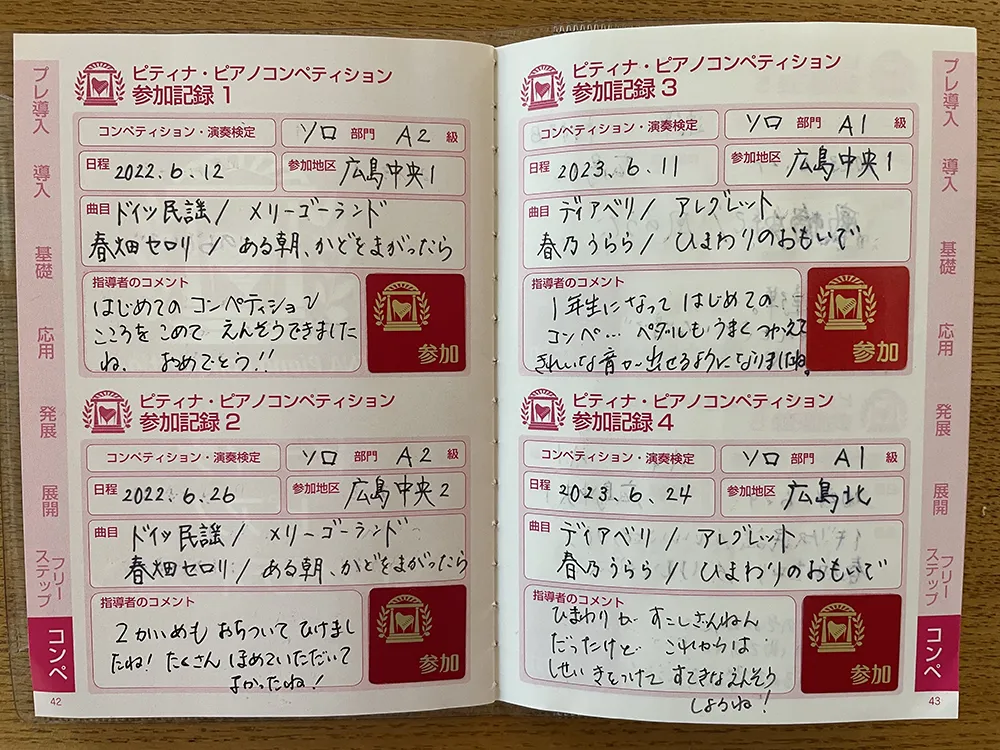 プレ導入
導入
基礎
応用
発展
展開
フリーステップ
コンペ
ピティナ・ピアノコンペティション
参加記録 1
コンペティション・演奏検定
ソロ 部門 A2 級
日程 2022.6.12
参加地区 広島中央1
曲目 ドイツ民謡/ メリーゴーランド
春畑セロリ/ ある朝、かどをまがったら
指導者のコメント
はじめての コンペティション
こころを こめて えんそうできました
ね、 おめでとう!!
参加
ピティナ・ピアノコンペティション
参加記録 2
コンペティション・演奏検定
ソロ 部門 A2 級
日程 2022.6.26
参加地区 広島中央2
曲目 ドイツ民謡/ メリーゴーランド
春畑セロリ/ ある朝、かどをまがったら
指導者のコメント
2かいめも おちついて ひけまし
たね! たくさん ほめていただいて
よかったね!
参加
42
ピティナ・ピアノコンペティション
参加記録 3
コンペティション・演奏検定
ソロ 部門 A1 級
日程 2023.6.11
参加地区 広島中央1
曲目 ディアベリ/ アレグレット
春乃うらら/ ひまわりのおもいで
指導者のコメント
1年生になって はじめての
コンペ… ペダルも うまく つかえて
きれいな音が出せるようになりましたね。
参加
ピティナ・ピアノコンペティション
参加記録 4
コンペティション・演奏検定
ソロ 部門 A1 級
日程 2023.6.24
参加地区 広島北
曲目 ディアベリ/ アレグレット
春乃うらら/ ひまわりのおもいで
指導者のコメント
ひまわりが すこしざんねん
だったけど これからは
せいきをつけて すてきなえんそう
しようね!
参加
プレ導入
導入
基礎
応用
発展
展開
フリーステップ
コンペ
43